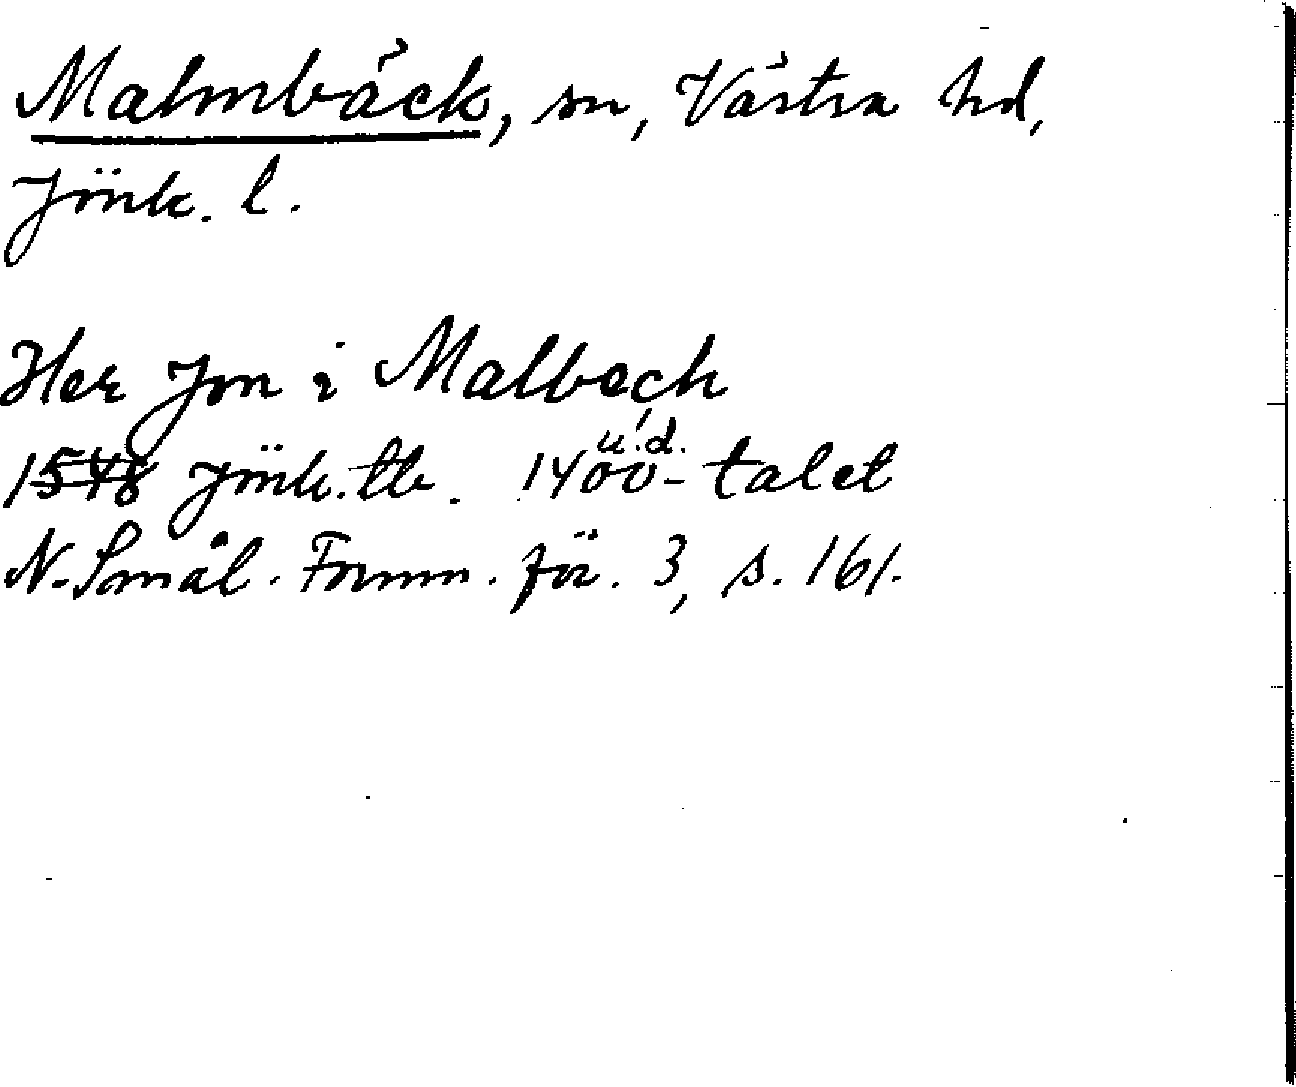 Malmbäck, sn, Västra hd,
Jönk. l.
Her Jon i Malbech
u.d.
1548 Jönk. tb. 1400-talet
N. Smål. Fornm. för. 3, s. 161.